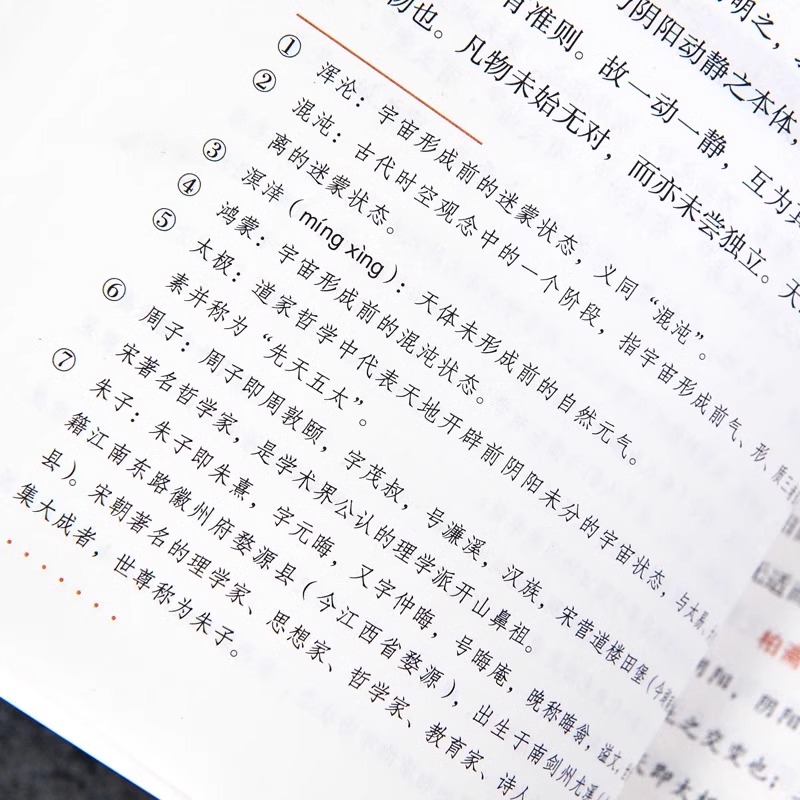 明之，
阴阳动静之本体，
有准则。故一动一静，互为其
物也。凡物未始无对，而亦未尝独立。天
① 浑沦：宇宙形成前的迷蒙状态，义同“混沌”。
② 混沌：古代时空观念中的一个阶段，指宇宙形成前气、形、质三者
离的迷蒙状态。
③ 溟涬（míng xìng）：天体未形成前的自然元气。
④ 鸿蒙：宇宙形成前的混沌状态。
⑤ 太极：道家哲学中代表天地开辟前阴阳未分的宇宙状态，与太易、
素并称为“先天五太”。
⑥ 周子：周子即周敦颐，字茂叔，号濂溪，汉族，宋营道楼田堡（今
宋著名哲学家，是学术界公认的理学派开山鼻祖。
⑦ 朱子：朱子即朱熹，字元晦，又字仲晦，号晦庵，晚称晦翁，谥文，
籍江南东路徽州府婺源县（今江西省婺源），出生于南剑州尤溪（
县）。宋朝著名的理学家、思想家、哲学家、教育家、诗人
集大成者，世尊称为朱子。
柏斋
阴阳，阴阳
之交变也；